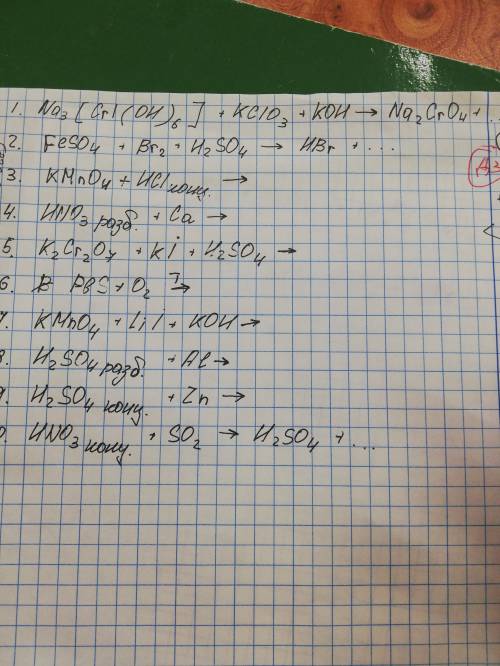 1. Na3[Cr(OH)6] + KClO3 + KOH → Na2CrO4 + ..
2. FeSO4 + Br2 + H2SO4 → HBr + ...
3. KMnO4 + HCl конц. →
4. HNO3 разб. + Ca →
5. K2Cr2O7 + KI + H2SO4 →
6. PbS + O2 →
7. KMnO4 + LiI + KOH →
8. H2SO4 разб. + Al →
9. H2SO4 конц. + Zn →
0. HNO3 конц. + SO2 → H2SO4 + ...